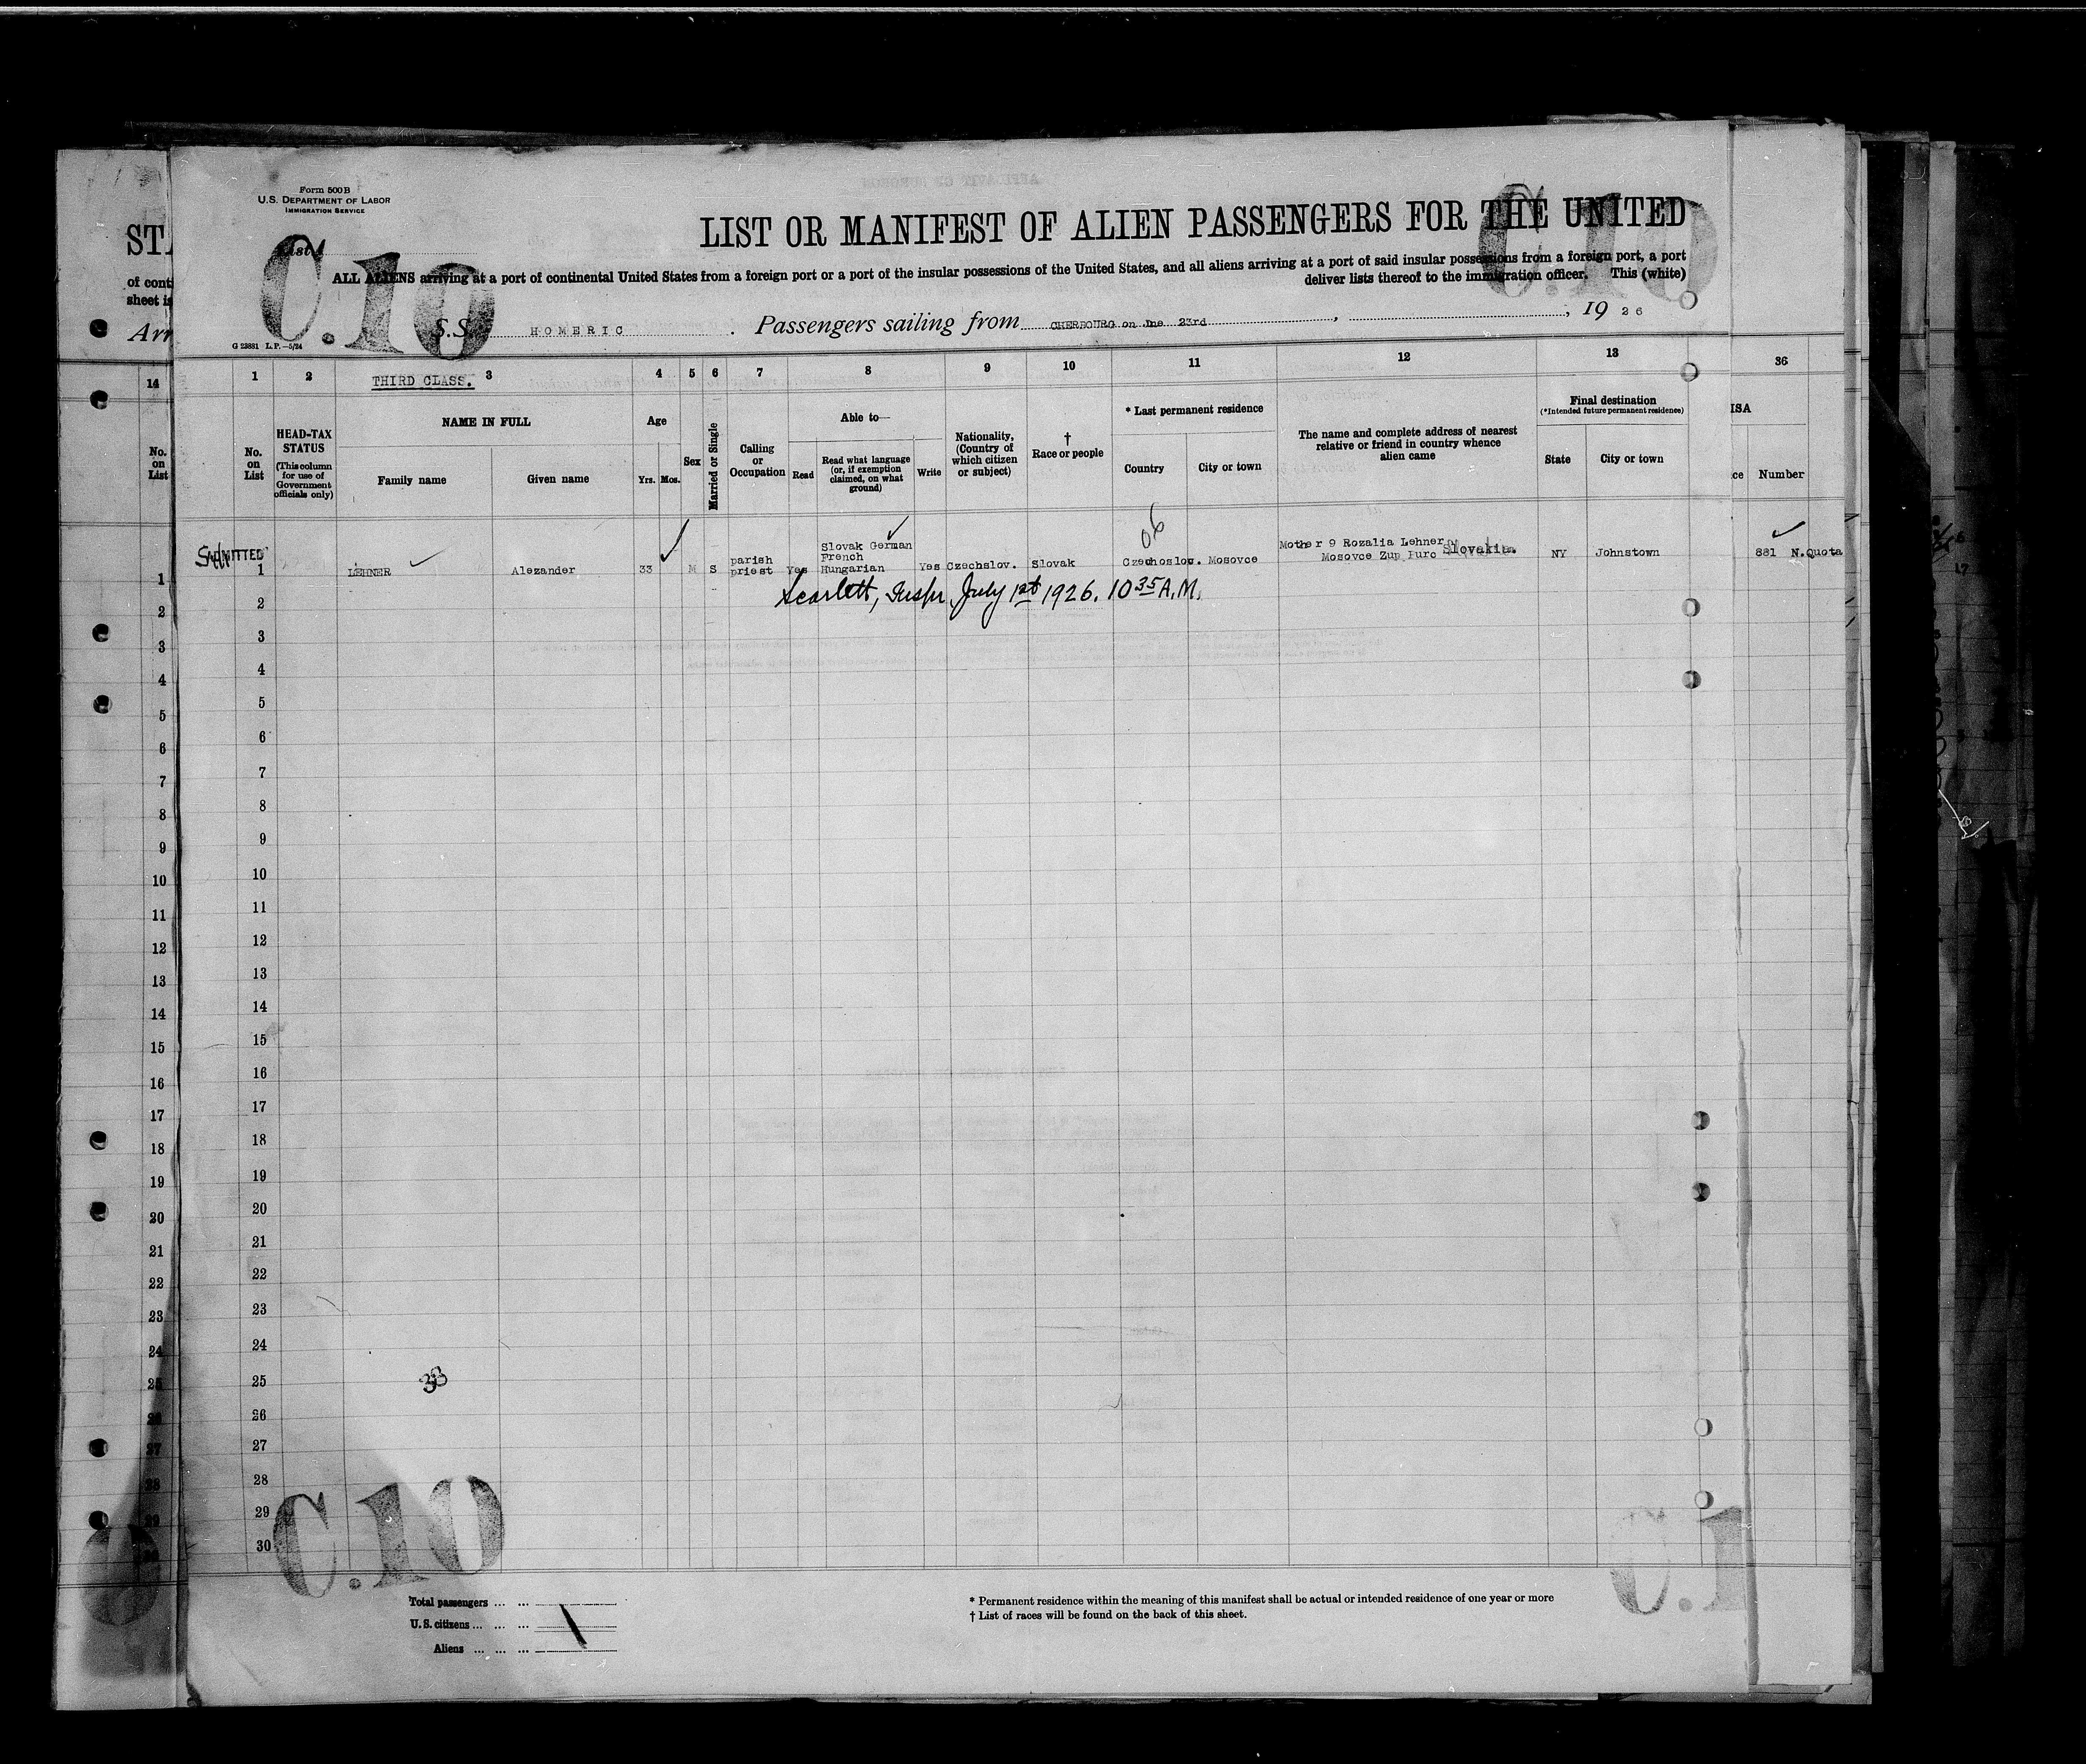 Form 500B
U.S. DEPARTMENT OF LABOR
IMMIGRATION SERVICE
LIST OR MANIFEST OF ALIEN PASSENGERS FOR THE UNITED
ALL ALIENS arriving at a port of continental United States from a foreign port or a port of the insular possessions of the United States, and all aliens arriving at a port of said insular possessions from a foreign port, a port
deliver lists thereof to the immigration officer. This (white)
C.10
C.10
S.S. HOMERIC. Passengers sailing from CHERBOURG on Jne 23rd, , 19 26
G 23881 L.P.—5/24
STA
of conti
sheet is
Arr
1 2 3 4 5 6 7 8 9 10 11 12 13 36
14
THIRD CLASS.
No. on List
HEAD-TAX STATUS
(This column for use of Government officials only)
NAME IN FULL
Family name
Given name
Age
Yrs. Mos.
Sex
Married or Single
Calling or Occupation
Able to—
Read
Read what language (or, if exemption claimed, on what ground)
Write
Nationality, (Country of which citizen or subject)
† Race or people
* Last permanent residence
Country
City or town
The name and complete address of nearest relative or friend in country whence alien came
Final destination
(*Intended future permanent residence)
State
City or town
ISA
ce Number
No. on List
ADMITTED
1 LEHNER Alezander 33 M S parish priest Yes Slovak German French Hungarian Yes Czechslov. Slovak Czechoslov. Mosovce Mother 9 Rozalia Lehner Mosovce Zup Slovakia. NY Johnstown 881 N.Quota
06
Scarlett, Inspr, July 1st 1926. 10 35 A.M.
1
2
3
4
5
6
7
8
9
10
11
12
13
14
15
16
17
18
19
20
21
22
23
24
25
26
27
28
29
30
2
3
4
5
6
7
8
9
10
11
12
13
14
15
16
17
18
19
20
21
22
23
24
25
26
27
28
29
30
C.10
C.1
Total passengers ... ...
U.S. citizens ... ... ...
Aliens ... ... ...
* Permanent residence within the meaning of this manifest shall be actual or intended residence of one year or more
† List of races will be found on the back of this sheet.